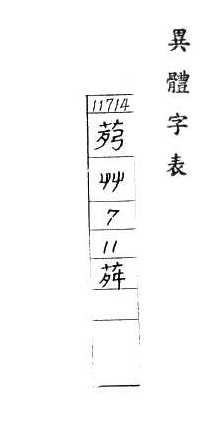 異體字表
11714
艸
7
11
荈